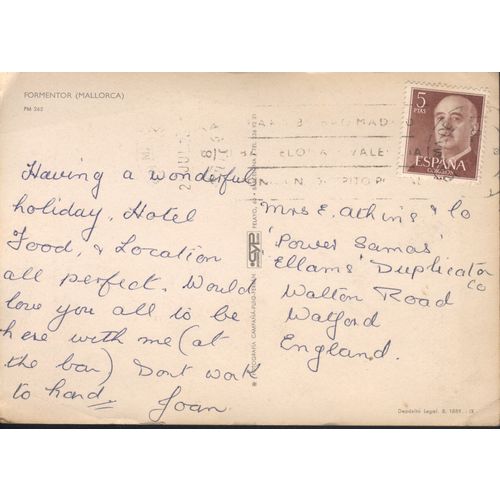 FORMENTOR (MALLORCA)
PM 262
Having a wonderful
holiday, Hotel
Food, & Location
all perfect. Would
love you all to be
here with me (at
the bar) Dont work
to hard. Joan
5
PTAS
ESPAÑA
CORREOS
Mrs E. Atkins & Co
'Power Samas'
'Ellams' Duplicator
Co
Walton Road
Watford
England.
Depósito Legal. B. 1889. - IX